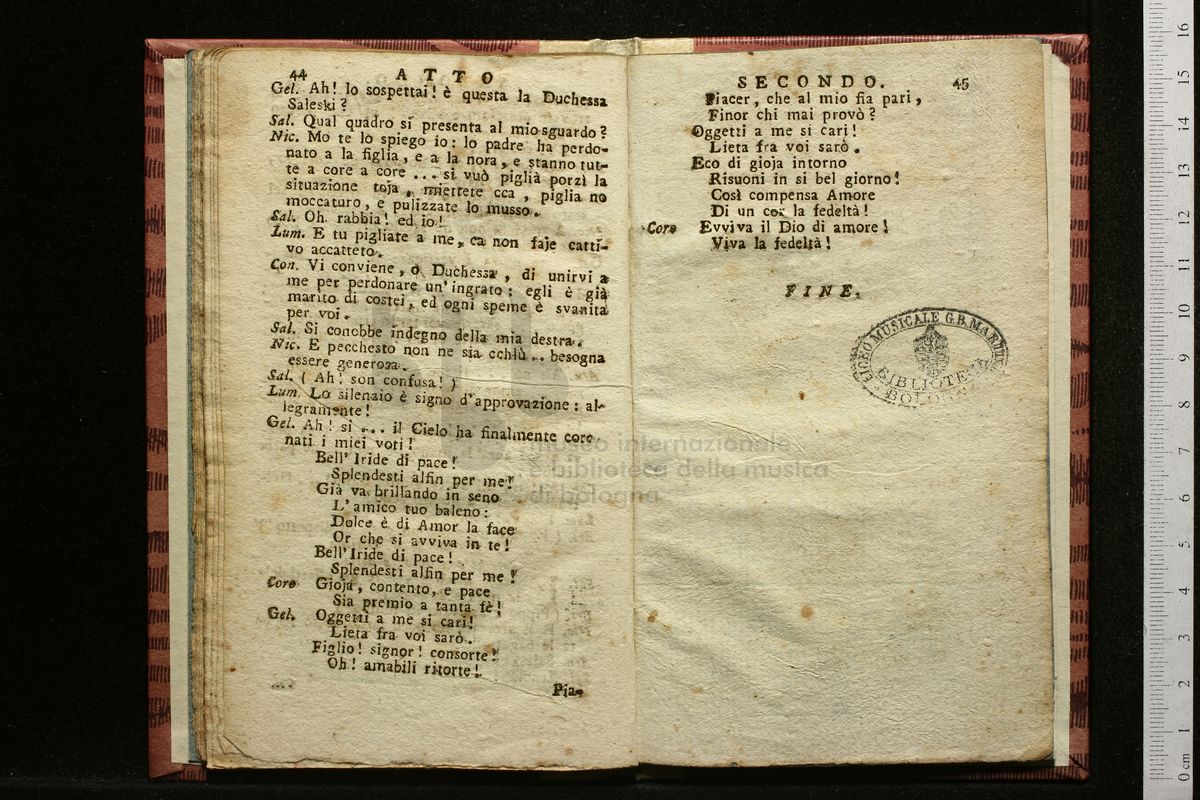 44 ATTO
Gel. Ah! lo sospettai! è questa la Duchessa
Saleski?
Sal. Qual quadro si presenta al mio sguardo?
Nic. Mo te lo spiego io: lo padre ha perdo-
nato a la figlia, e a la nora, e stanno tut-
te a core a core ... si vuò piglià porzì la
situazione toja, miettete cca, piglia no
moccaturo, e pulizzate lo musso.
Sal. Oh rabbia! ed io!
Lum. E tu pigliate a me, ca non faje catti-
vo accatteto.
Con. Vi conviene, o Duchessa, di unirvi a
me per perdonare un'ingrato: egli è già
marito di costei, ed ogni speme è svanita
per voi.
Sal. Si conobbe indegno della mia destra.
Nic. E pecchesto non ne sia cchlù .. besogna
essere generosa.
Sal. (Ah! son confusa!)
Lum. Lo silenzio è signo d'approvazione: al-
legramente!
Gel. Ah! si ... il Cielo ha finalmente coro-
nati i miei voti!
Bell'Iride di pace!
Splendesti alfin per me!
Già va brillando in seno
L'amico tuo baleno:
Dolce è di Amor la face
Or che si avviva in te!
Bell'Iride di pace!
Splendesti alfin per me!
Coro Gioja, contento, e pace
Sia premio a tanta fè!
Gel. Oggetti a me si cari!
Lieta fra voi sarò.
Figlio! signor! consorte!
Oh! amabili ritorte!
Pia-
SECONDO. 45
Piacer, che al mio fia pari,
Finor chi mai provò?
Oggetti a me si cari!
Lieta fra voi sarò.
Eco di gioja intorno
Risuoni in si bel giorno!
Così compensa Amore
Di un cor la fedeltà!
Coro Evviva il Dio di amore!
Viva la fedeltà!
FINE.
LICEO MUSICALE G.B. MARTINI
BIBLIOTECA
BOLOGNA
museo internazionale
e biblioteca della musica
di bologna
0 cm 1 2 3 4 5 6 7 8 9 10 11 12 13 14 15 16